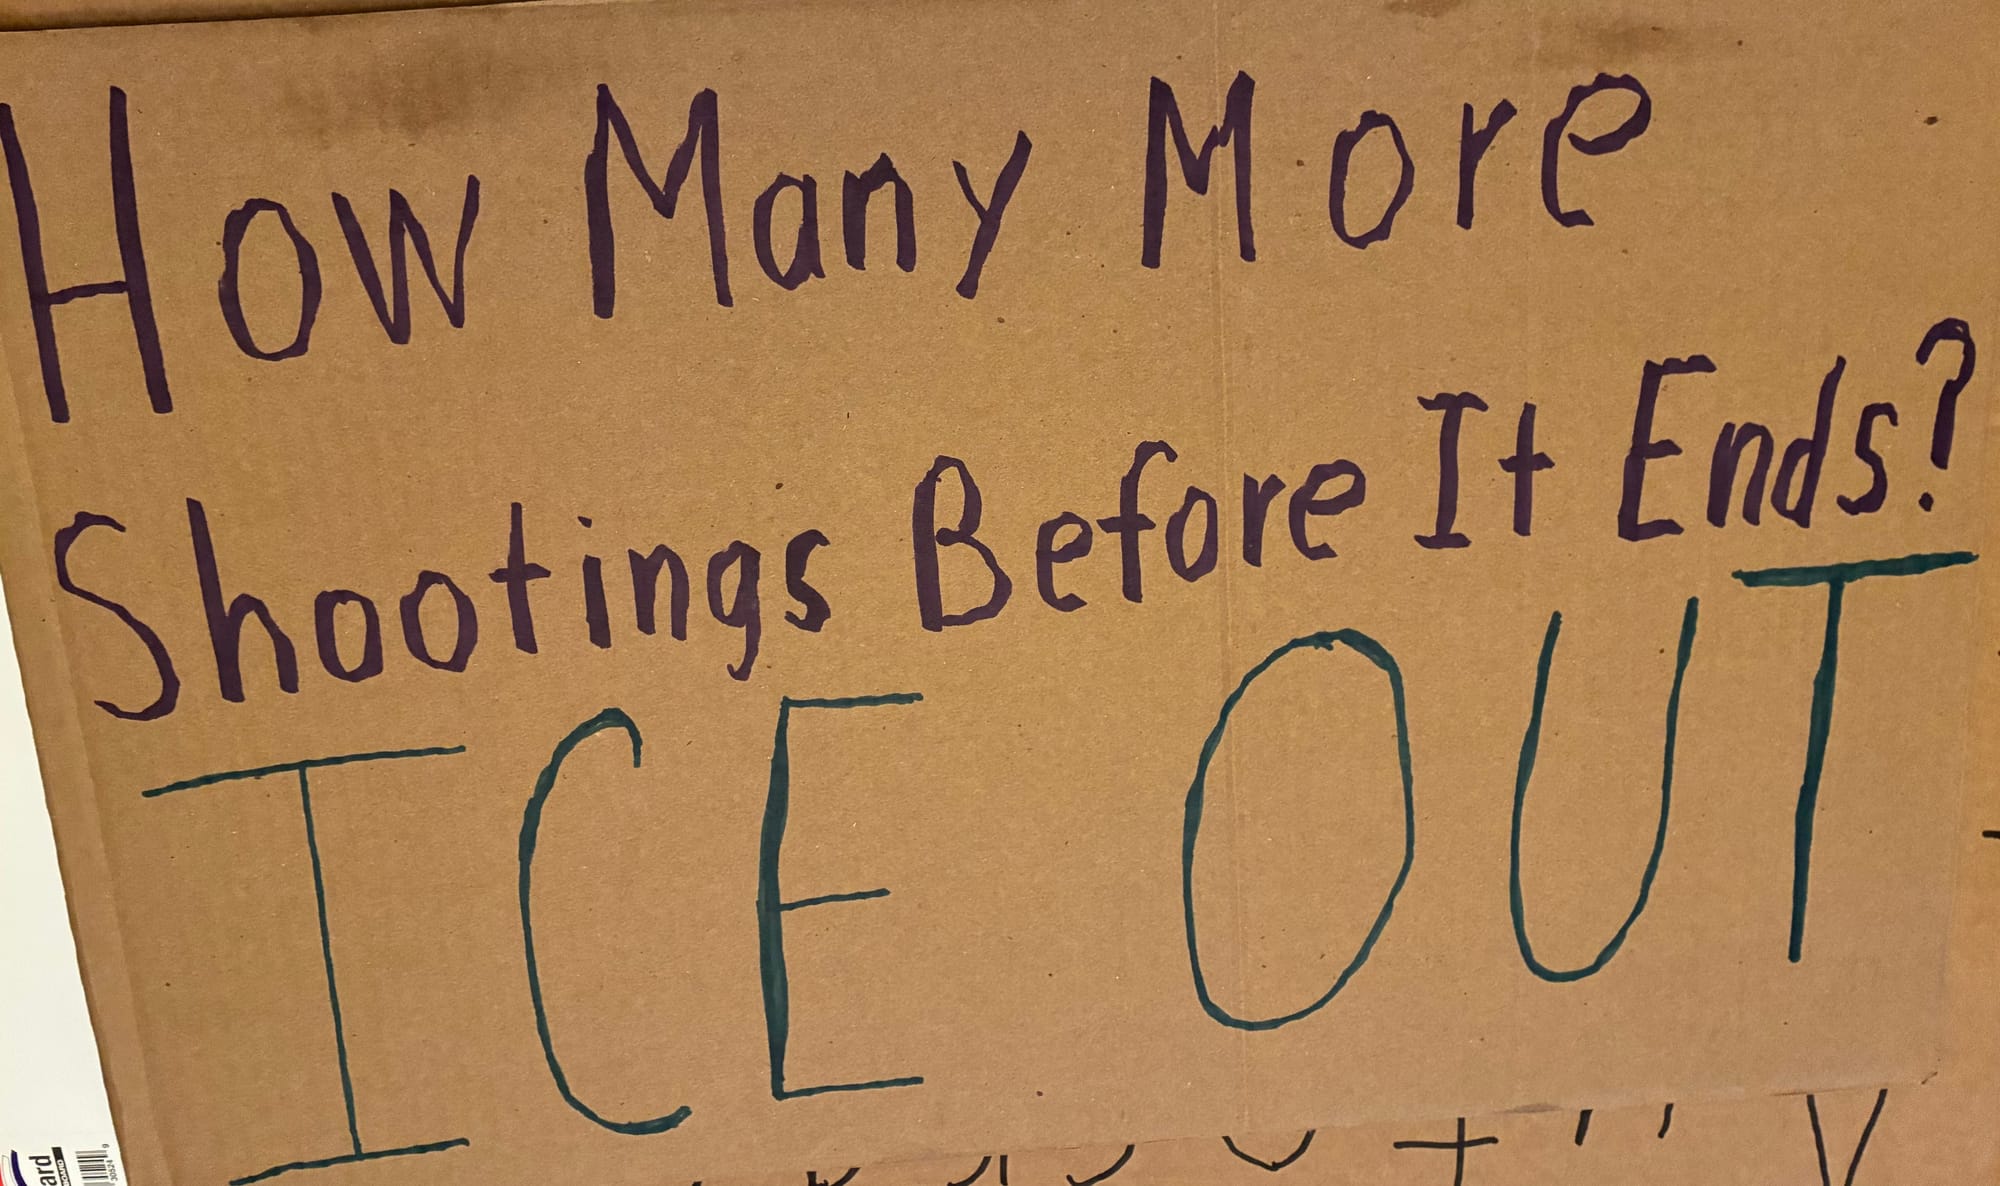 How Many More
Shootings Before It Ends?
ICE OUT
ard